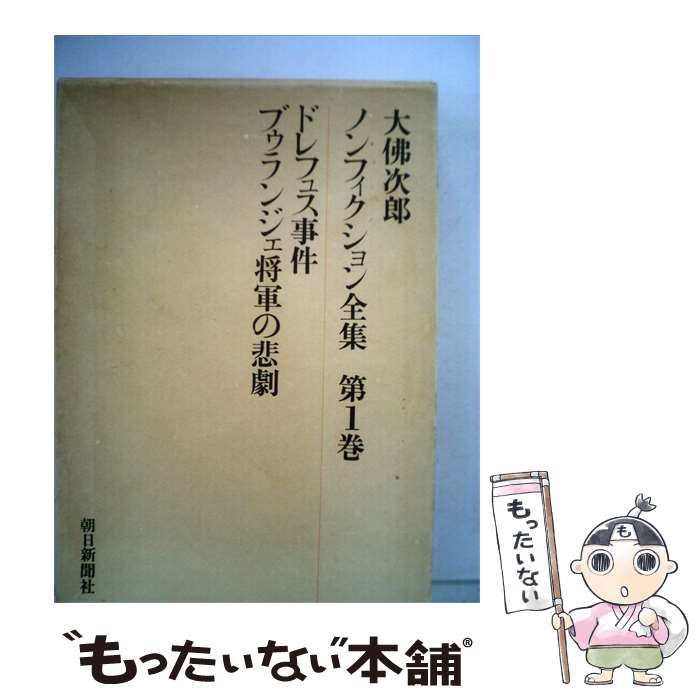 大佛次郎
ノンフィクション全集 第1巻
ドレフュス事件
ブゥランジェ将軍の悲劇
朝日新聞社
もったいない
も
“もったいない”本舗®